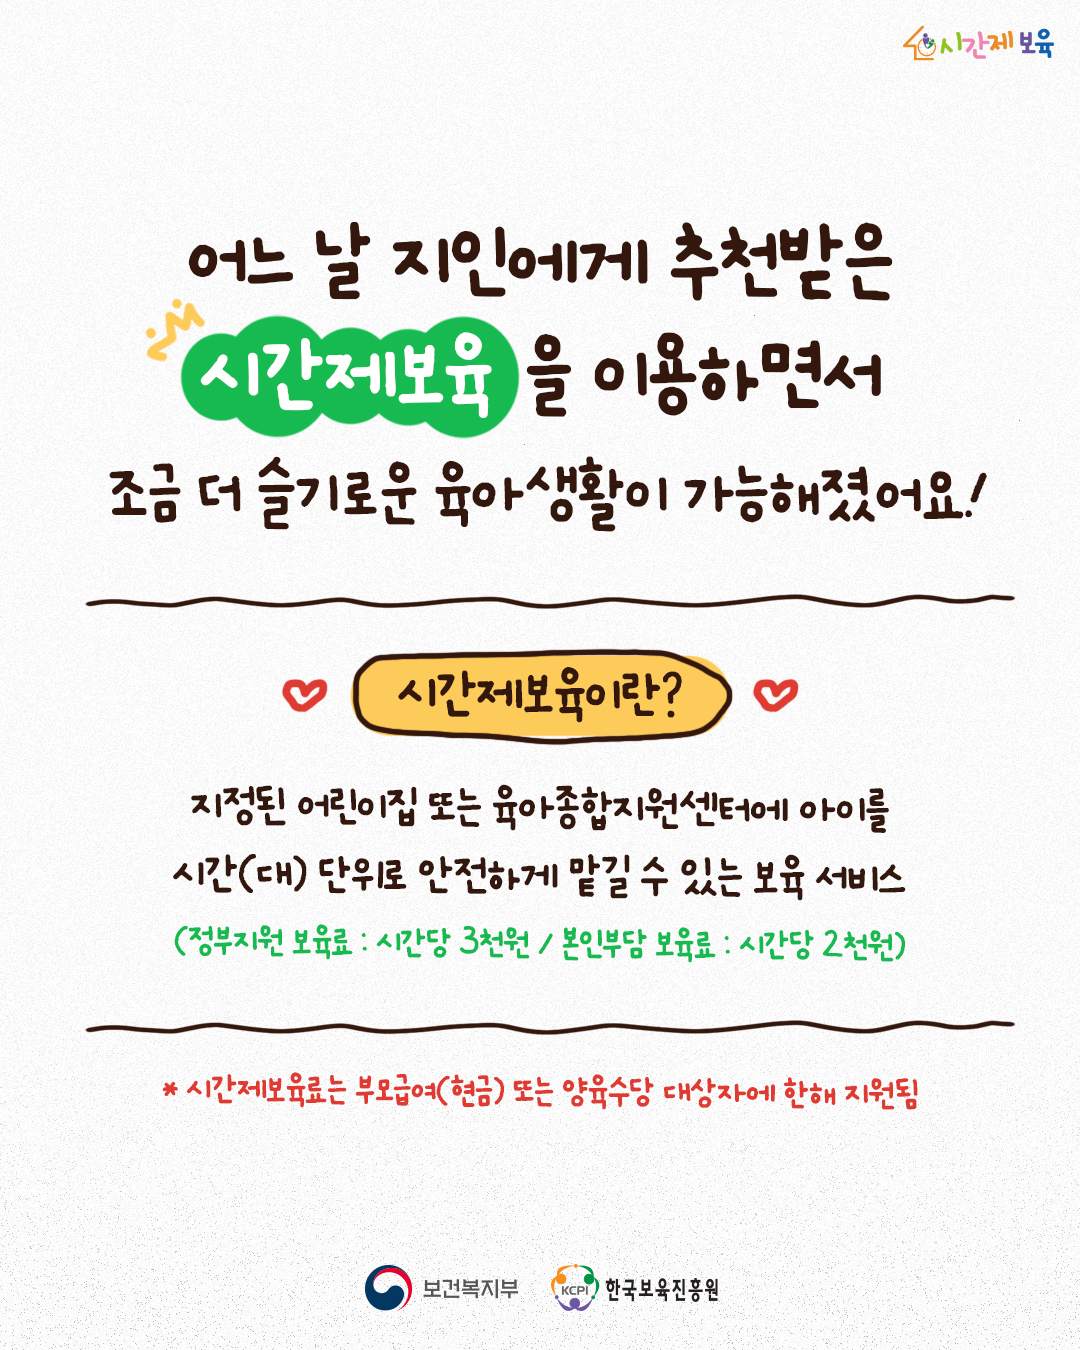 시간제 보육
어느 날 지인에게 추천받은
시간제보육을 이용하면서
조금 더 슬기로운 육아생활이 가능해졌어요!
시간제보육이란?
지정된 어린이집 또는 육아종합지원센터에 아이를
시간(대) 단위로 안전하게 맡길 수 있는 보육 서비스
(정부지원 보육료 : 시간당 3천원 / 본인부담 보육료 : 시간당 2천원)
* 시간제보육료는 부모급여(현금) 또는 양육수당 대상자에 한해 지원됨
보건복지부 KCPI 한국보육진흥원